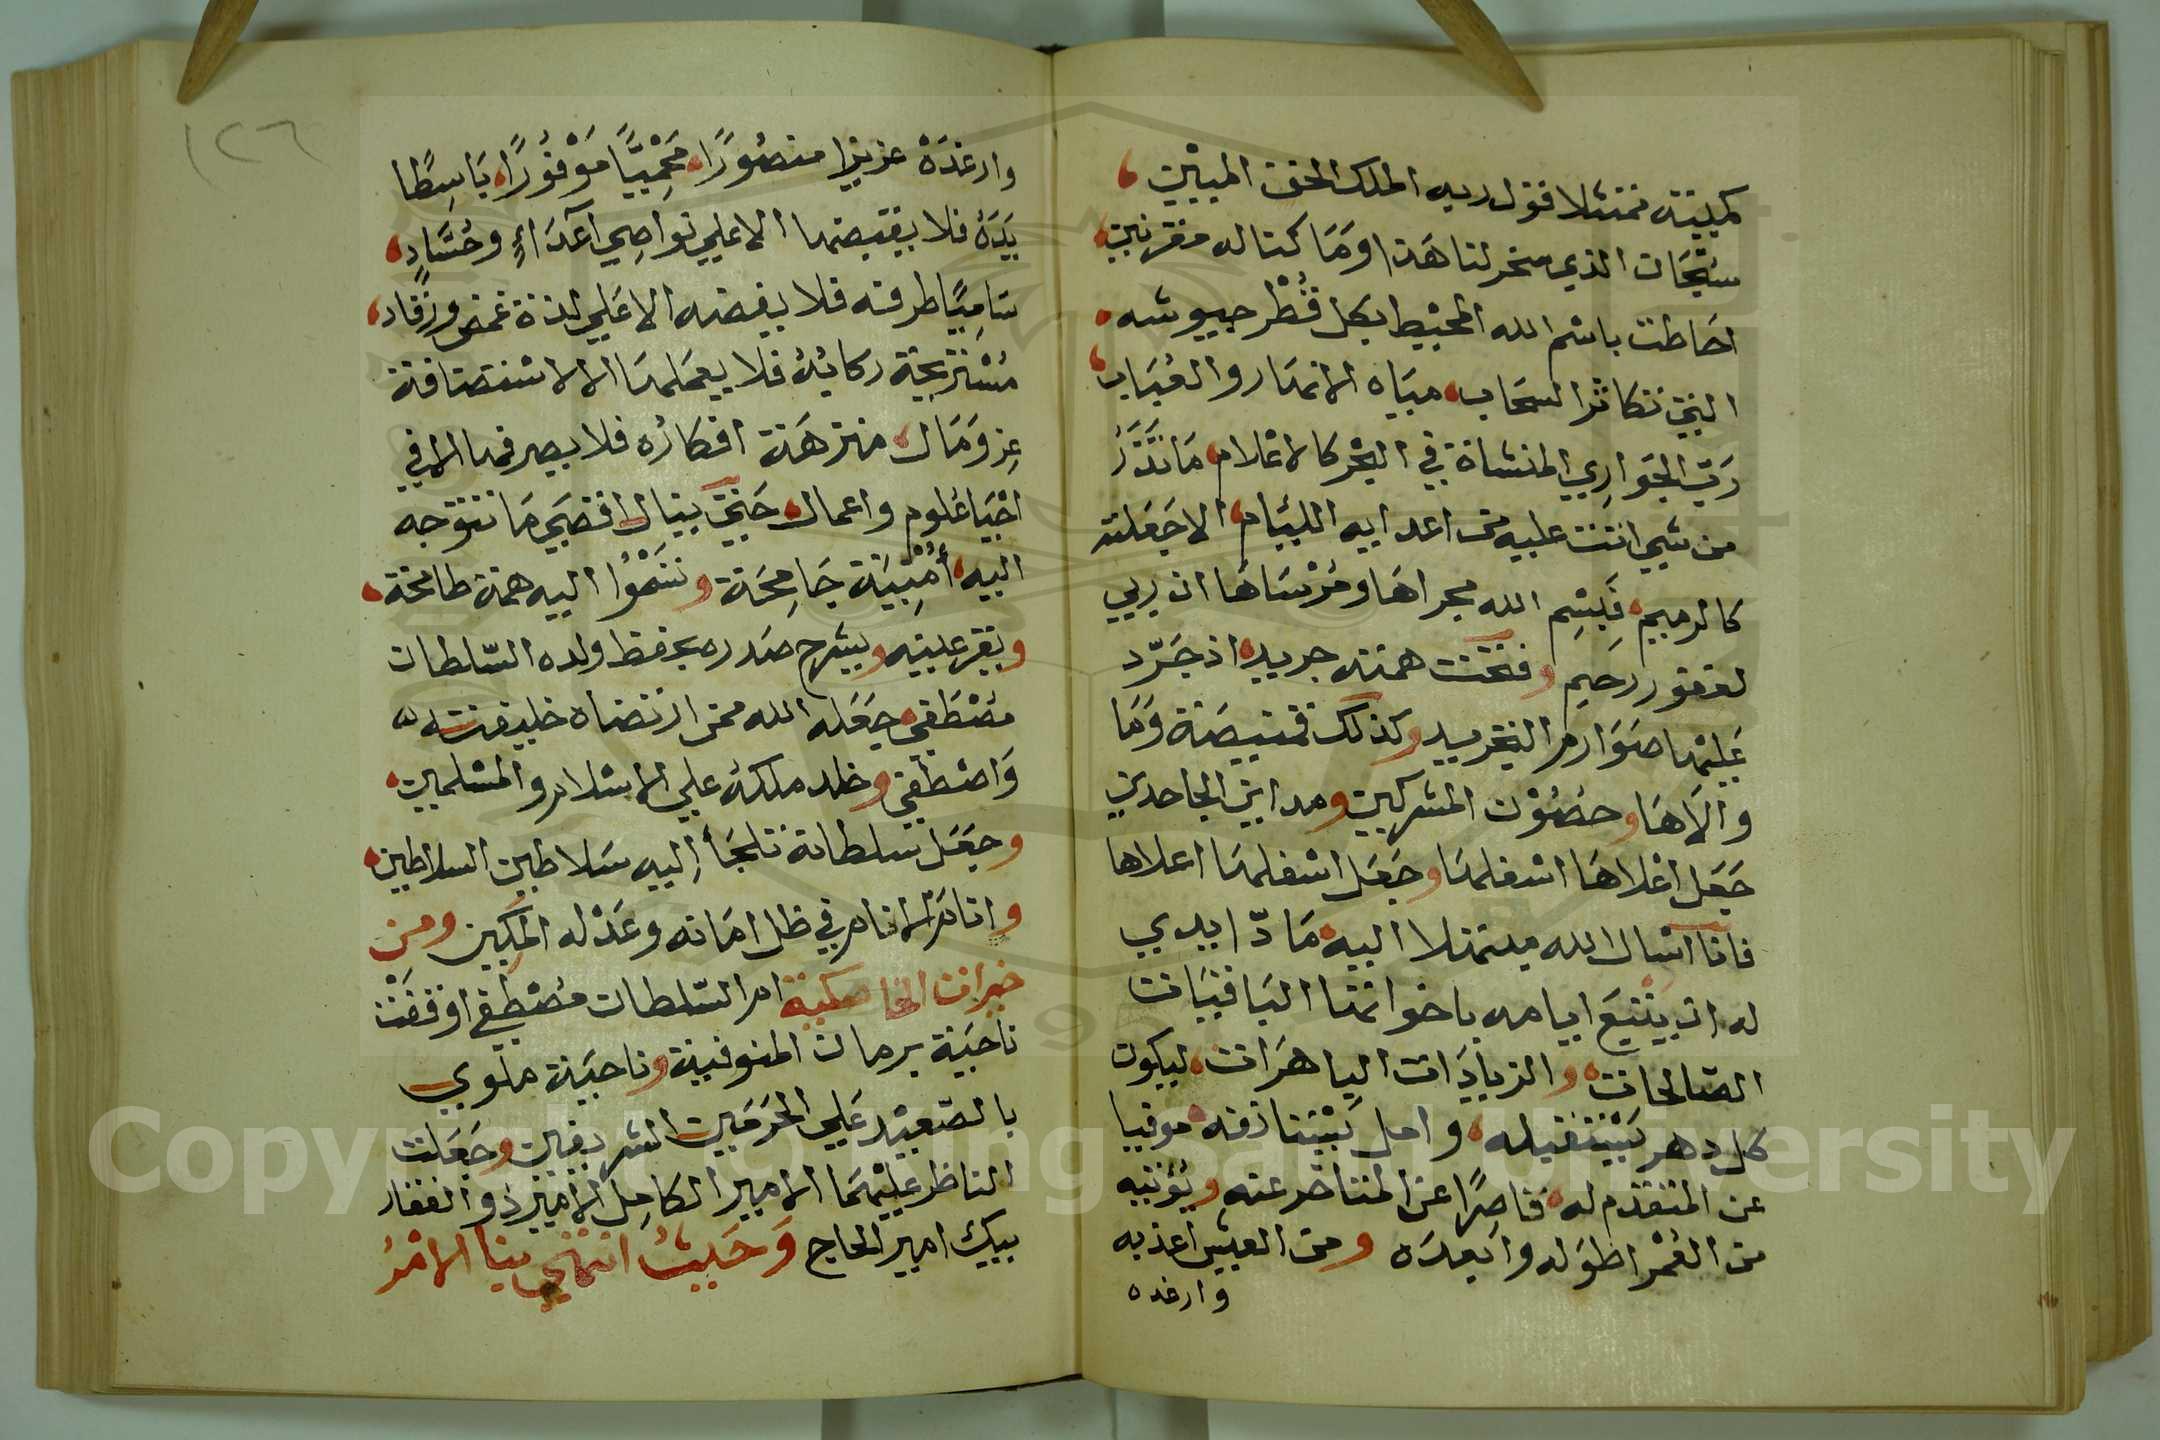 كمينته ممتثلا قول ربه الملك الحق المبين
سبحان الذي سخر لنا هذا وما كنا له مقرنين
احاطت باسم الله المحيط بكل قطر جيوشه
التي تكاثر السحاب مياه الانهار والعباب
رب الجواري المنشاة في البحر كالاعلام ما تذر
من شي اتت عليه من اعدايه الليام الا جعلته
كالرميم فبسم الله مجراها ومرساها ان ربي
لغفور رحيم وفتحت همته جربه اذ جرد
عليها صوارم التجريد وكذلك قمنيصة وما
والاها وحصون المشركين ومداين الجاحدين
جعل اعلاها اسفلها وجعل اسفلها اعلاها
فانا اسال الله مبتهلا اليه مادّا يدي
له ان يتبع ايامه باخواتها الباقيات
الصالحات والزيادات الباهرات ليكون
كل دهر يستقبله وامل يستانفه موفيا
عن المتقدم له قاصرًا عن المتاخر عنه ويؤتيه
من العُمْر اطوله وابعده ومن العيش اعذبه
وارغده
١٢٦
وارغده عزيزا منصورًا محميًّا موفورًا باسطا
يده فلا يقبضها الا علي نواصي اعداءٍ وحسّادٍ
ساميًا طرفه فلا يغضه الا علي لذة غمض ورقاد
مستريحة ركابه فلا يعملها الا لاستضافة
عز ومال منزهة افكاره فلا يصرفها الا في
احيا علوم واعمال حتي ينال اقصي ما تتوجه
اليه أمنية جامحة وتسموا اليه همة طامحة
ويقر عينيه ويشرح صدره بحفظ ولده السلطان
مصطفي جعله الله ممن ارتضاه خليفته له
واصطفي وخلد ملكه علي الاسلام والمسلمين
وجعل سلطانه تلجأ إليه سلاطين السلاطين
وانام الانام في ظل امانه وعدله المكين ومن
خيرات الخاصكية ام السلطان مصطفي اوقفت
ناحية برمان المنوفية وناحية ملوي
بالصعيد علي الحرمين الشريفين وجعلت
الناظر عليهما الامير الكامل الامير ذو الفقار
بيك امير الحاج وحيث انتهي بنا الامر
Copyright © King Saud University